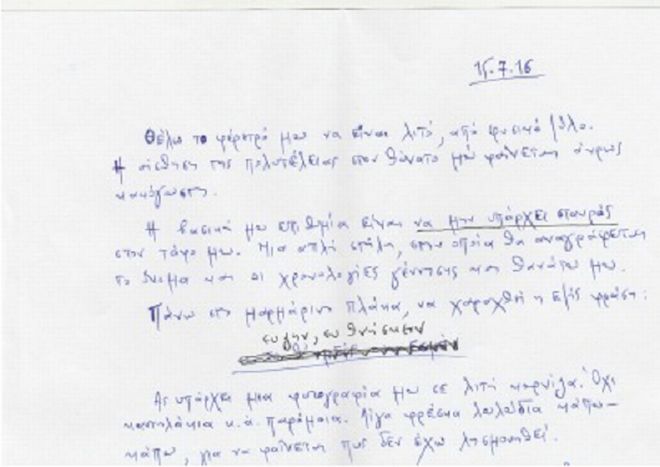 15.7.16
Θέλω το φέρετρό μου να είναι λιτό, από φυσικό ξύλο.
Η αίσθηση της πολυτέλειας στον θάνατο μού φαίνεται άκρως
κακόγουστη.
Η βασική μου επιθυμία είναι να μην υπάρχει σταυρός
στον τάφο μου. Μια απλή στήλη, στην οποία θα αναγράφεται
το όνομα και οι χρονολογίες γέννησης και θανάτου μου.
Πάνω στη μαρμάρινη πλάκα, να χαραχθεί η εξής φράση:
ευ ζην, ευ θνήσκειν
Ας υπάρχει μια φωτογραφία μου σε λιτή κορνίζα. Όχι
καντηλάκια κ.ά. παρόμοια. Λίγα φρέσκα λουλούδια κάπου-
κάπου, για να φαίνεται πως δεν έχω λησμονηθεί.